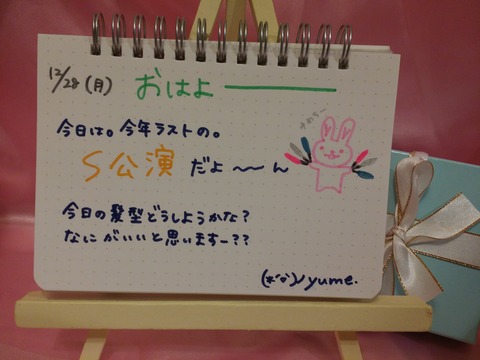 12/28(月) おはよーーー
今日は。今年ラストの。
S公演 だよ〜〜ん
今日の髪型どうしようかな?
なにがいいと思いますー??
(*'▽')ノyume.